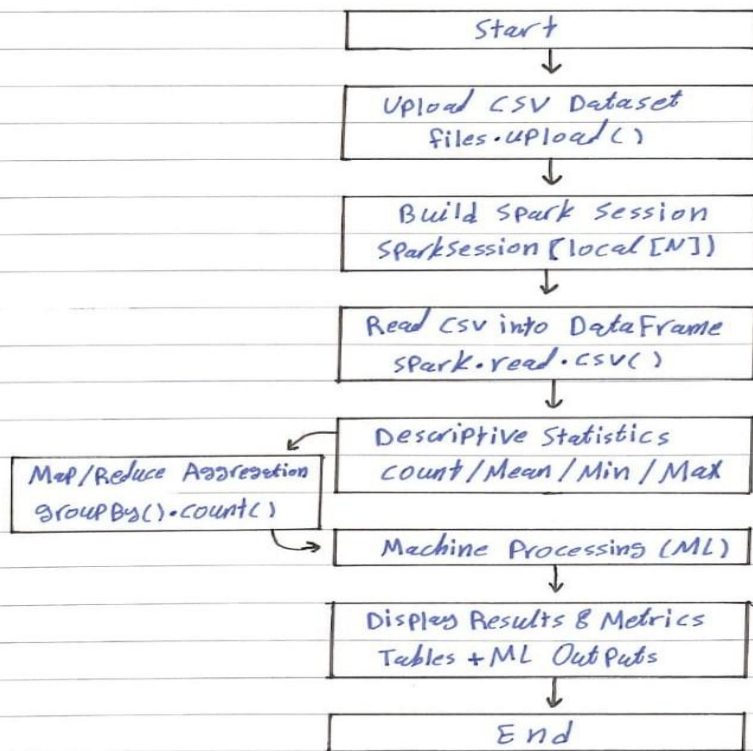 Start
Upload CSV Dataset
files.upload()
Build Spark Session
SparkSession[local[N])
Read CSV into DataFrame
spark.read.csv()
Descriptive Statistics
count/Mean/Min/Max
Map/Reduce Aggregation
groupBy().count()
Machine Processing (ML)
Display Results & Metrics
Tables + ML OutPuts
End